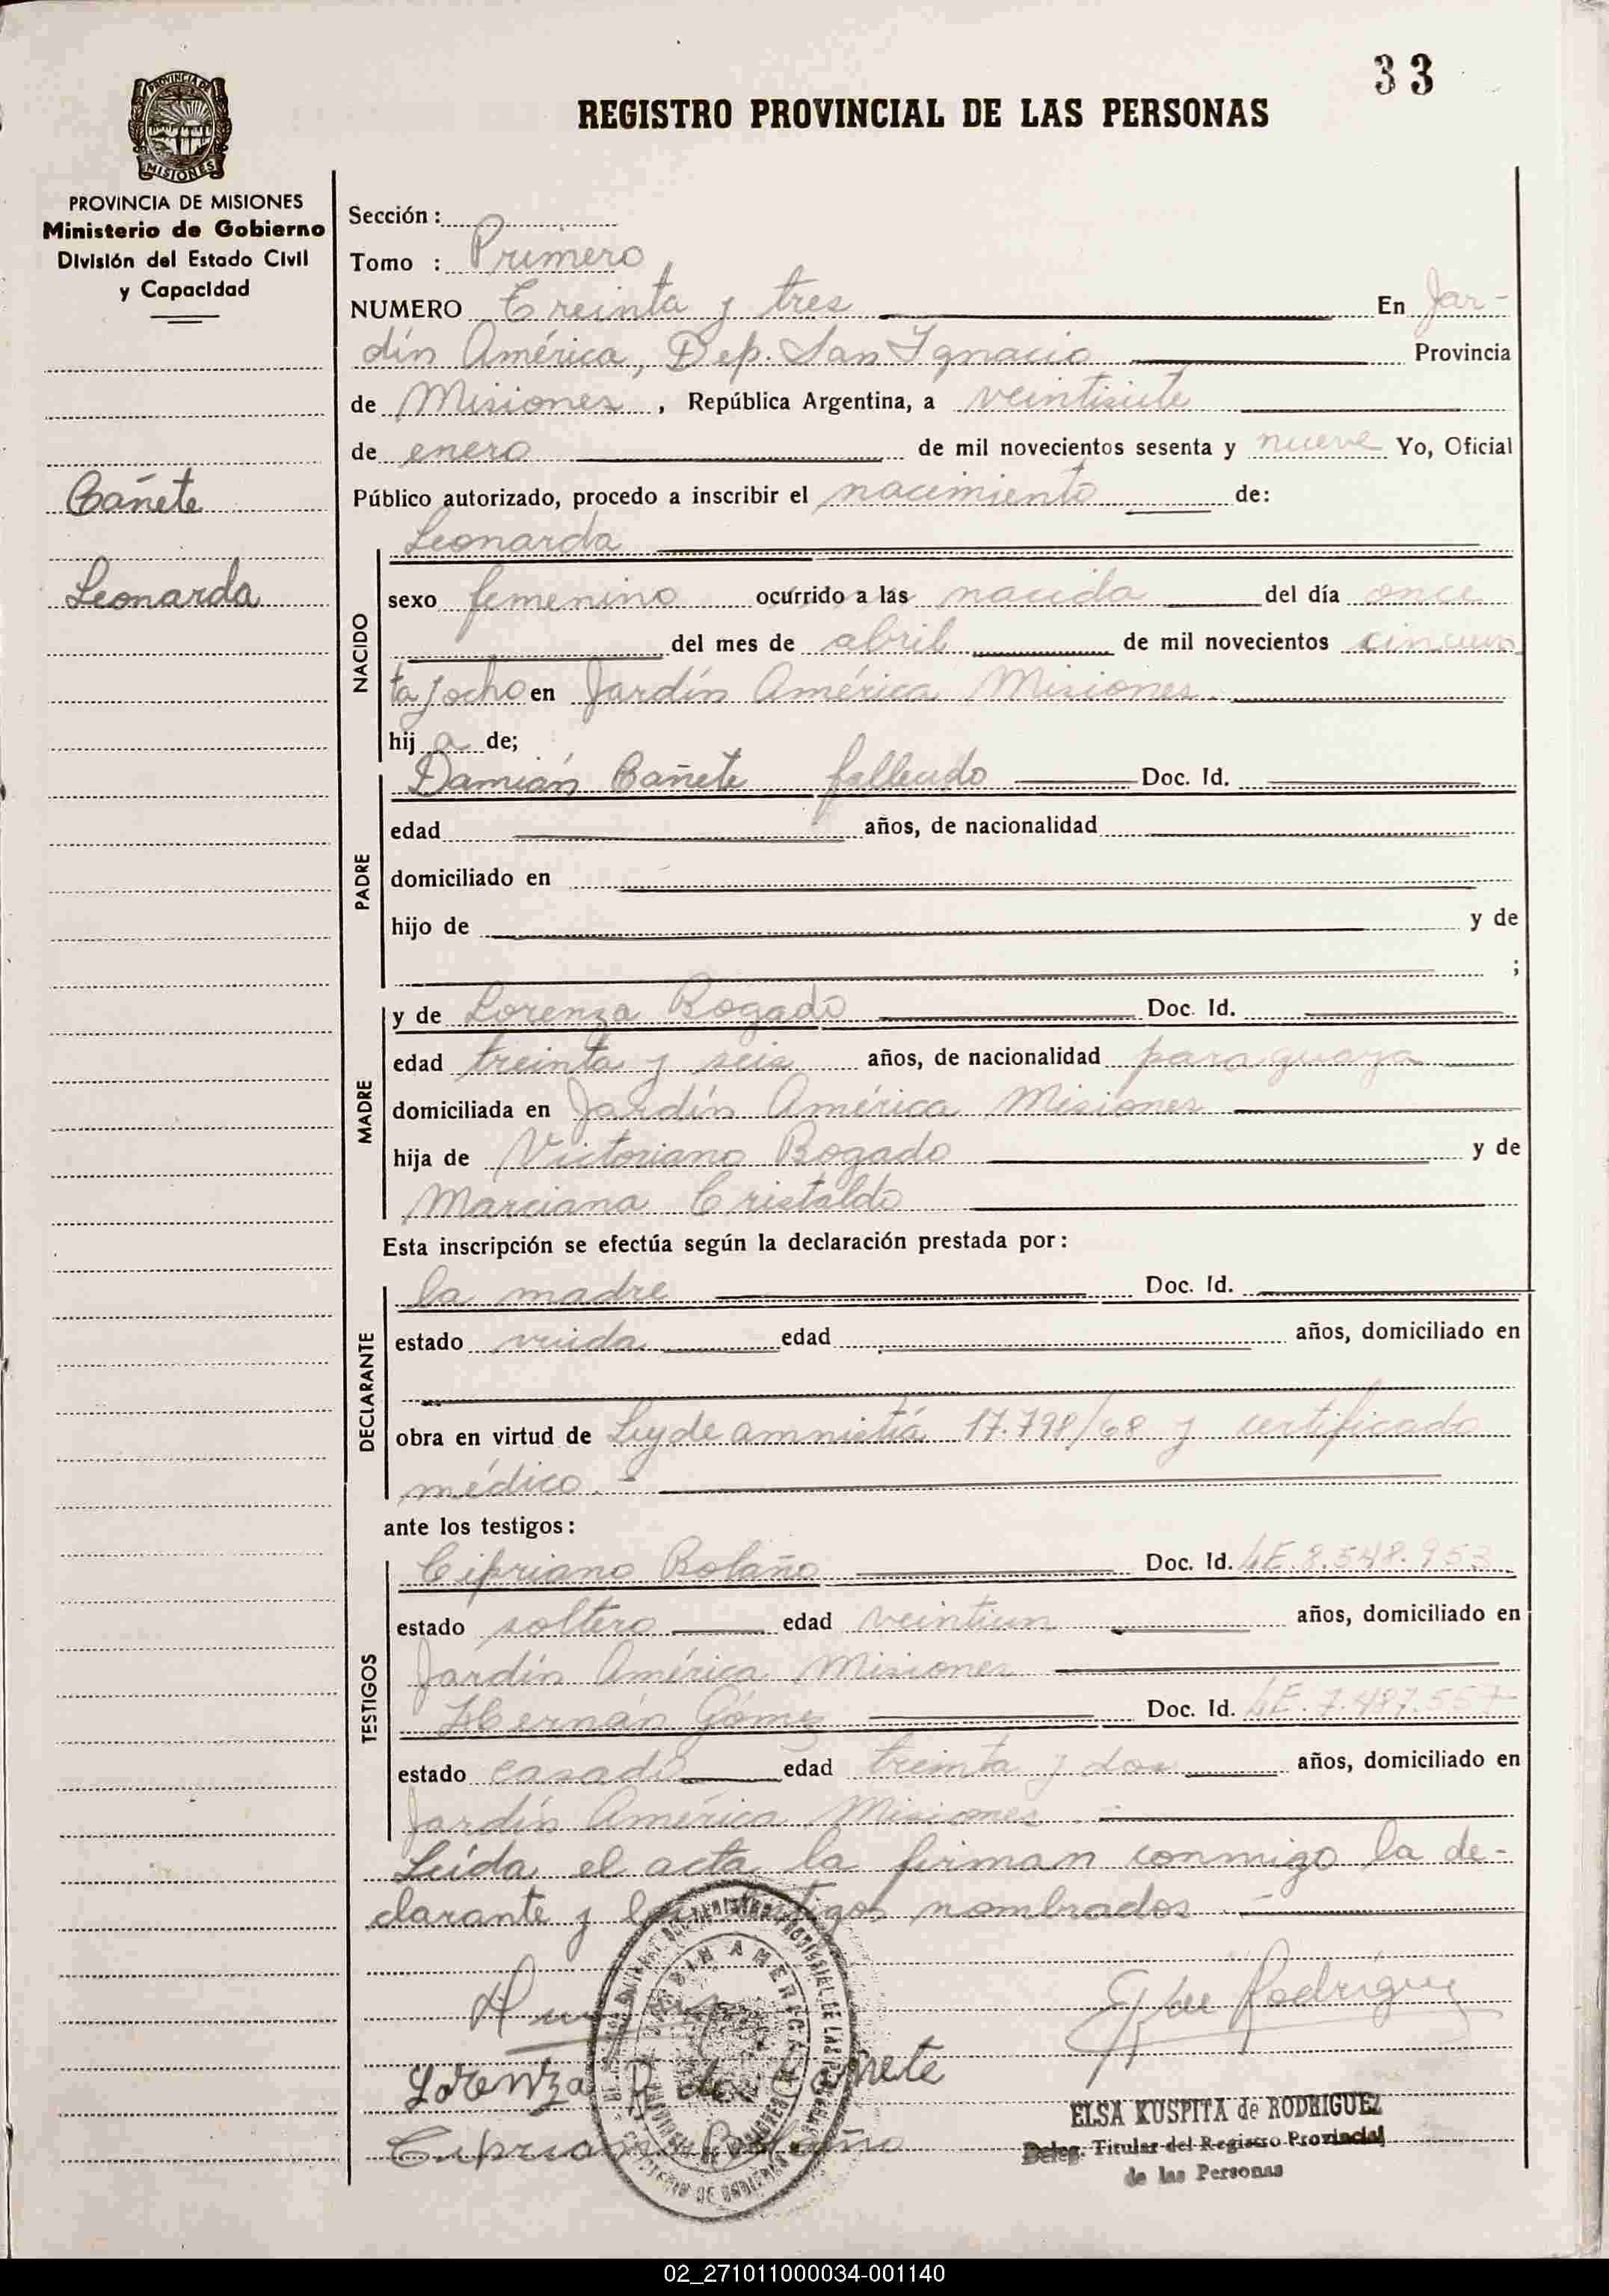 33
REGISTRO PROVINCIAL DE LAS PERSONAS
PROVINCIA DE
MISIONES
PROVINCIA DE MISIONES
Ministerio de Gobierno
División del Estado Civil
y Capacidad
Cañete
Leonarda
Sección :
Tomo : Primero
NUMERO Treinta y tres En Jar-
dín América, Dep. San Ignacio Provincia
de Misiones, República Argentina, a veintisiete
de enero de mil novecientos sesenta y nueve Yo, Oficial
Público autorizado, procedo a inscribir el nacimiento de:
Leonarda
NACIDO
sexo femenino ocurrido a las nacida del día once
del mes de abril de mil novecientos cincuen
ta y ocho en Jardín América Misiones
hija de;
PADRE
Damián Cañete fallecido Doc. Id.
edad años, de nacionalidad
domiciliado en
hijo de y de
;
MADRE
y de Lorenza Bogado Doc. Id.
edad treinta y seis años, de nacionalidad paraguaya
domiciliada en Jardín América Misiones
hija de Victoriano Bogado y de
Marciana Cristaldo
Esta inscripción se efectúa según la declaración prestada por:
DECLARANTE
la madre Doc. Id.
estado viuda edad años, domiciliado en
obra en virtud de Ley de amnistía 17.798/68 y certificado
médico. -
ante los testigos:
TESTIGOS
Cipriano Bolaño Doc. Id. LE. 8.548.953
estado soltero edad veintiun años, domiciliado en
Jardín América Misiones
Hernán Gómez Doc. Id. LE. 7.487.557
estado casado edad treinta y dos años, domiciliado en
Jardín América Misiones. -
Leída el acta la firman conmigo la de-
clarante y los testigos nombrados -
JARDIN AMERICA
Rodriguez
Lorenza B de Cañete
Cipriano Bolaño
ELSA KUSPITA de RODRIGUEZ
Deleg. Titular del Registro Provincial
de las Personas
02_271011000034-001140